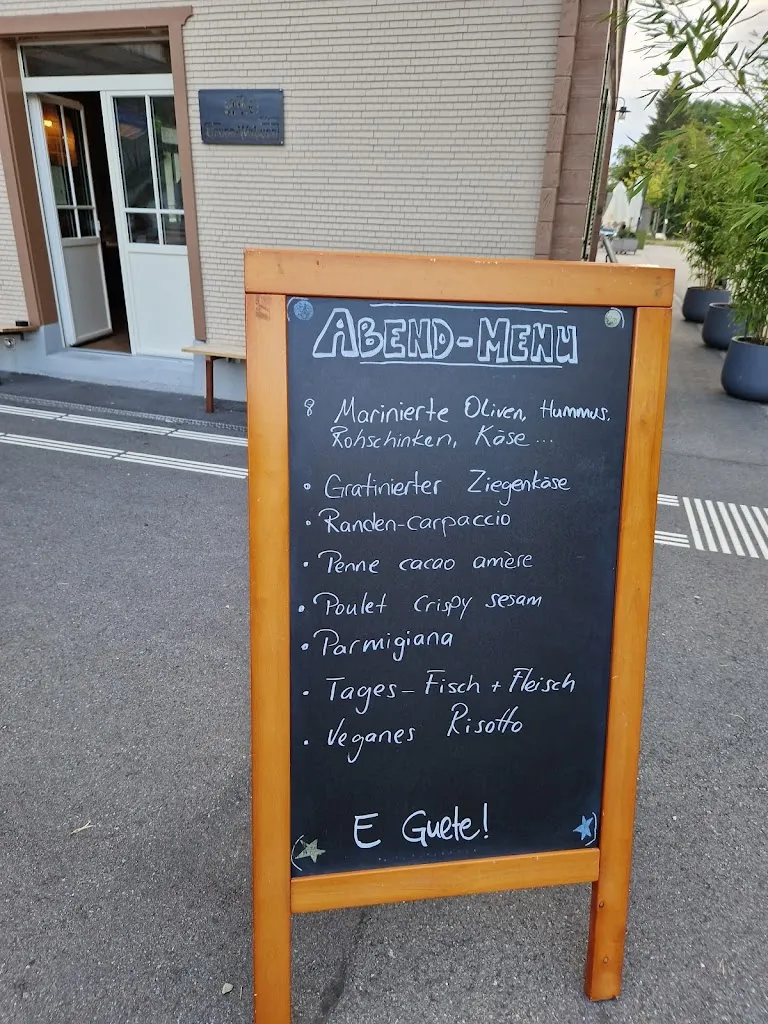 ABEND-MENU
8 Marinierte Oliven, Hummus,
Rohschinken, Käse...
• Gratinierter Ziegenkäse
• Randen-Carpaccio
• Penne cacao amère
• Poulet Crispy sesam
• Parmigiana
• Tages-Fisch + Fleisch
• Veganes Risotto
E Guete!